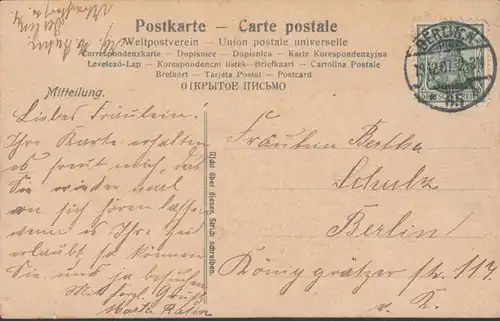 Postkarte - Carte postale
Weltpostverein - Union postale universelle
Correspondenzkarte - Dopisnice - Dopisnica - Karte Korespondenzyjna
Levelező-Lap - Korespondenční listek - Briefkaart - Cartolina Postale
Brefkort - Tarjeta Postal - Postcard
ОТКРЫТОЕ ПИСЬМО
BERLIN
Mitteilung.
Liebes Fräulein.
Ihre Karte erhalten
es freut mich, das
Sie wieder mal
von sich hören lassen
wenn es Ihre Zeit
erlaubt so können
Sie uns ja besuchen
Mit herzl. Gruß
Nicht über diesen Strich schreiben.
Fräulein Bertha
Schulz
Berlin
Königgrätzer str. 117